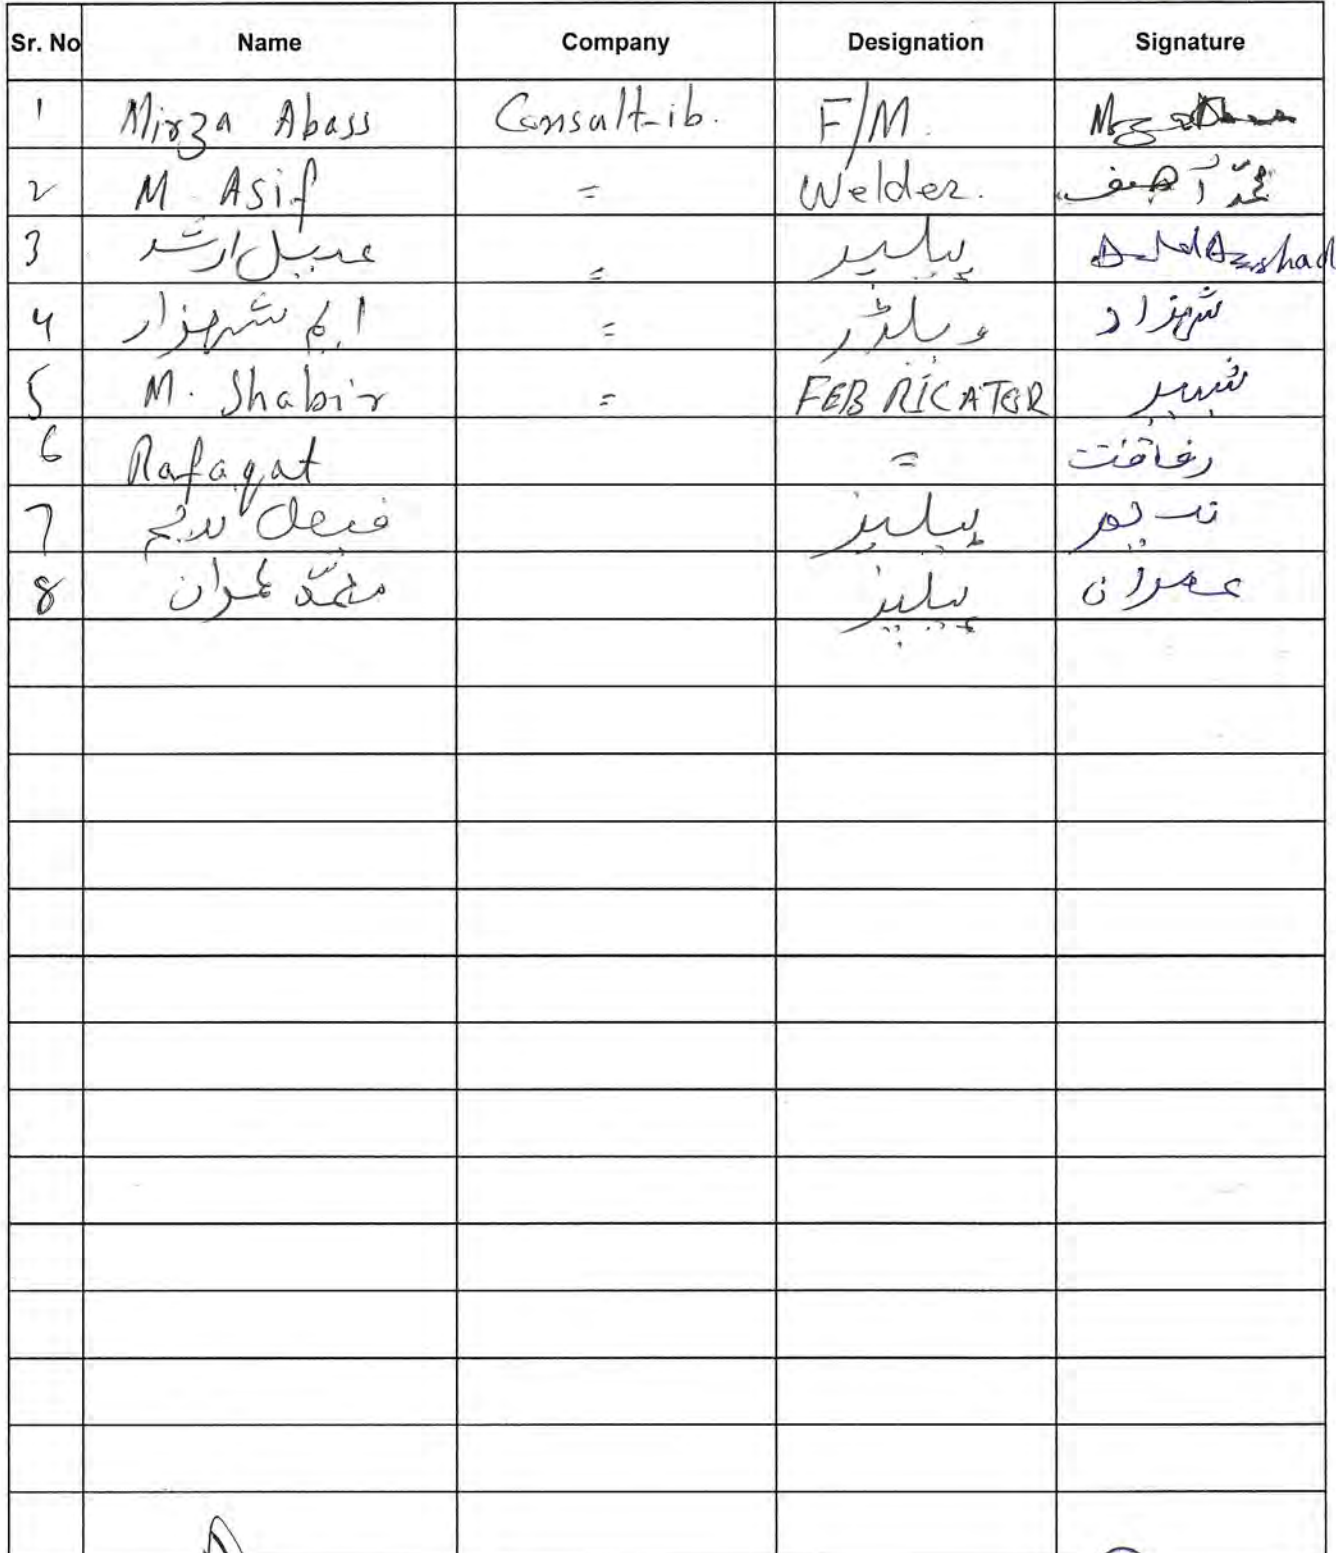 Sr. No Name Company Designation Signature
1 Mirza Abass Consult-ib. F/M.
2 M. Asif = Welder. محمّد آصف
3 عدیل ارشد = ہیلپر Arshad
4 ایم شہزاد = ویلڈر شہزاد
5 M. Shabir = FEBRICATOR شبیر
6 Rafaqat = رفاقت
7 ہیلپر
8 محمّد عمران ہیلپر عمران